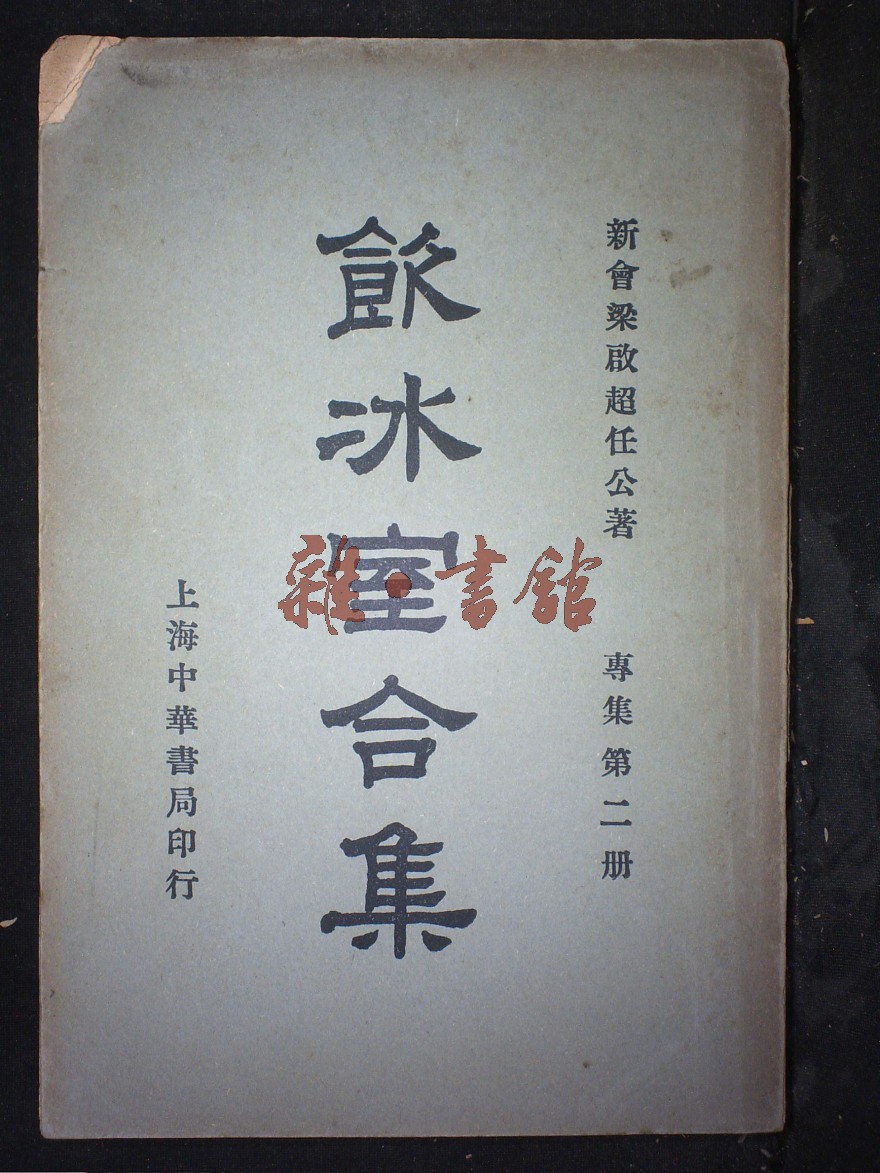 新會梁啟超任公著　專集第二册
飲冰室合集
雜·書館
上海中華書局印行